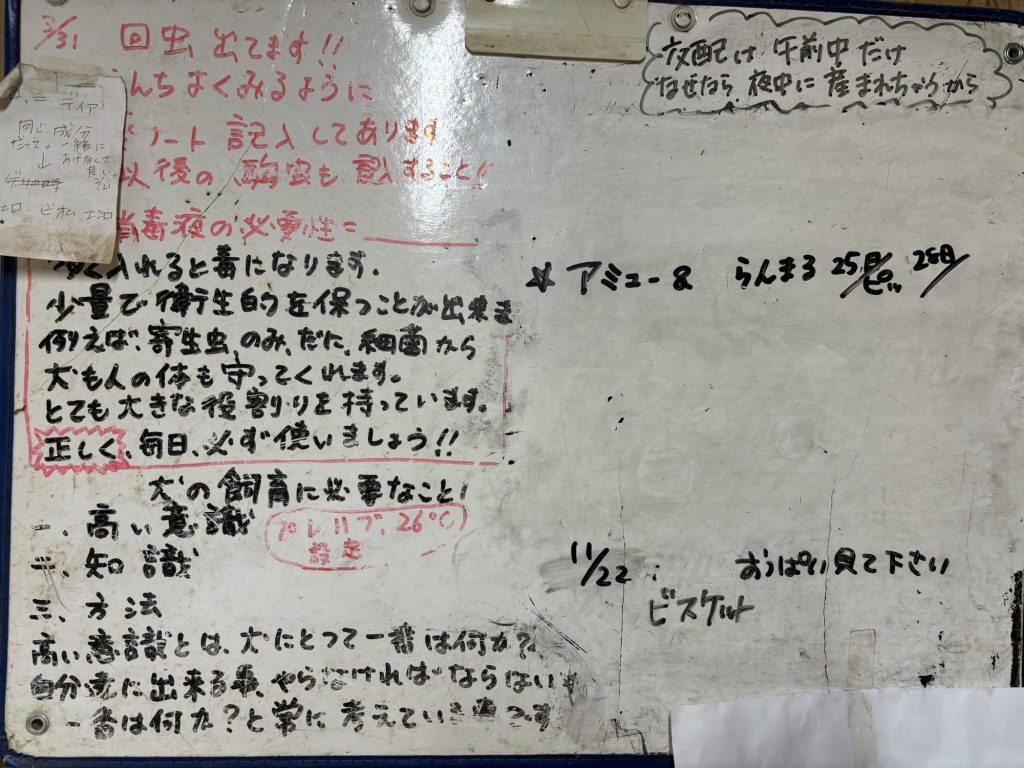 3/31 回虫出てます!!
んちよくみるように
ノート記入してあります
以後の駒虫も記することに!!
消毒液の必要性=
多く入れると毒になります.
少量で衛生的を保つことが出来ま
例えば、寄生虫、のみ、だに、細菌から
犬も人の体も守ってくれます。
とても大きな役割りを持っています.
正しく、毎日、必ず使いましょう!!
犬の飼育に必要なこと!
一、高い意識
26℃)
設定
二、知識
三、方法
高い意識とは、犬にとって一番は何か?
自分達に出来る事、やらなければならない
一番は何か?と常に考えていき です
同じ成分
だって。一緒に
↓ あげなくて
良い
交配は午前中だけ
なぜなら夜中に産まれちゃうから
☆ アミュー& らんまる 25日/ 28日/
11/22 : おっぱい見て下さい
ビスケット